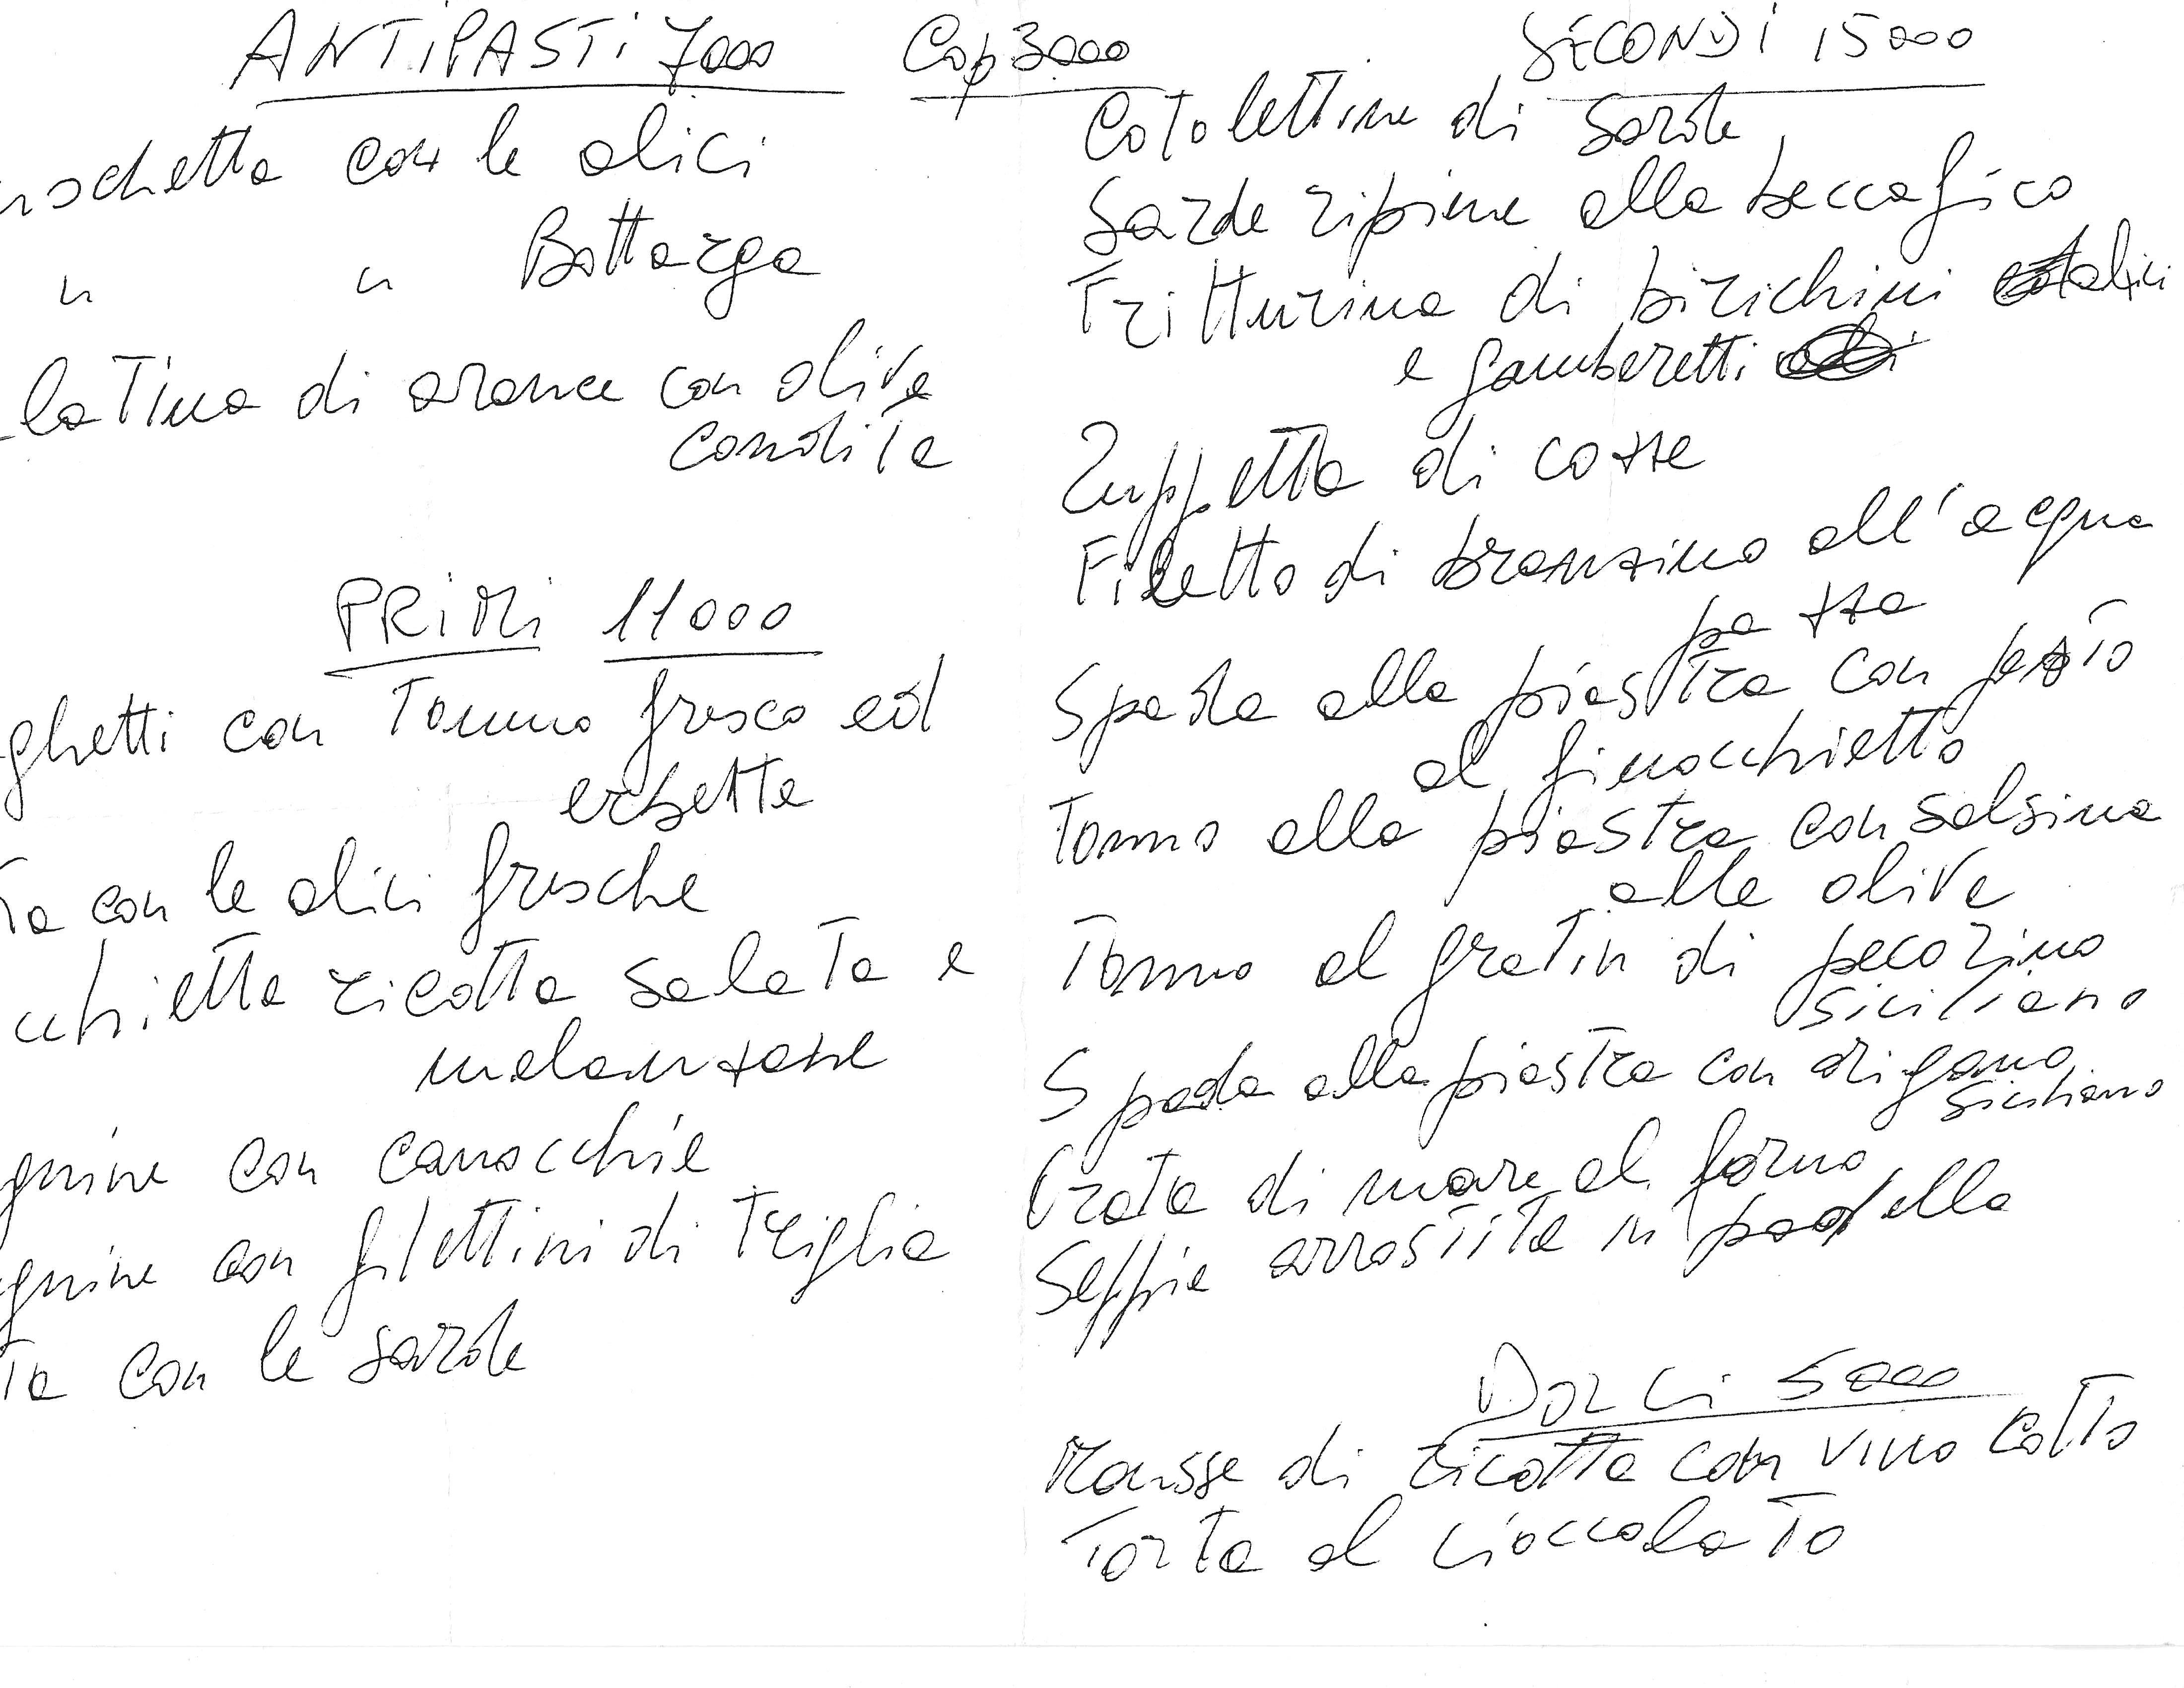 ANTiPASTi 7000
Cop 3000
uschetta con le alici
" " Bottarga
latina di arance con olive
condite
PRiMi 11000
ghetti con Tonno fresco ed
erbette
Ta con le alici fresche
cchiette ricotta salata e
melanzane
guine con canocchie
guine con filettini di Triglia
Ta con le sarde
SECONDi 15000
Cotolettine di sarde
Sarde ripiene alla beccafico
Fritturina di birichini alici
e gamberetti
Zuppetta di cozze
Filetto di branzino all'acqua
pazza
Spada alla piastra con pesto
al finocchietto
Tonno alla piastra con salsina
alle olive
Tonno al gratin di pecorino
siciliano
Spada alla piastra con origano
siciliano
Orata di mare al forno
Seppie arrostite in padella
DOLCi 5000
Mousse di ricotta con vino cotto
Torta al cioccolato